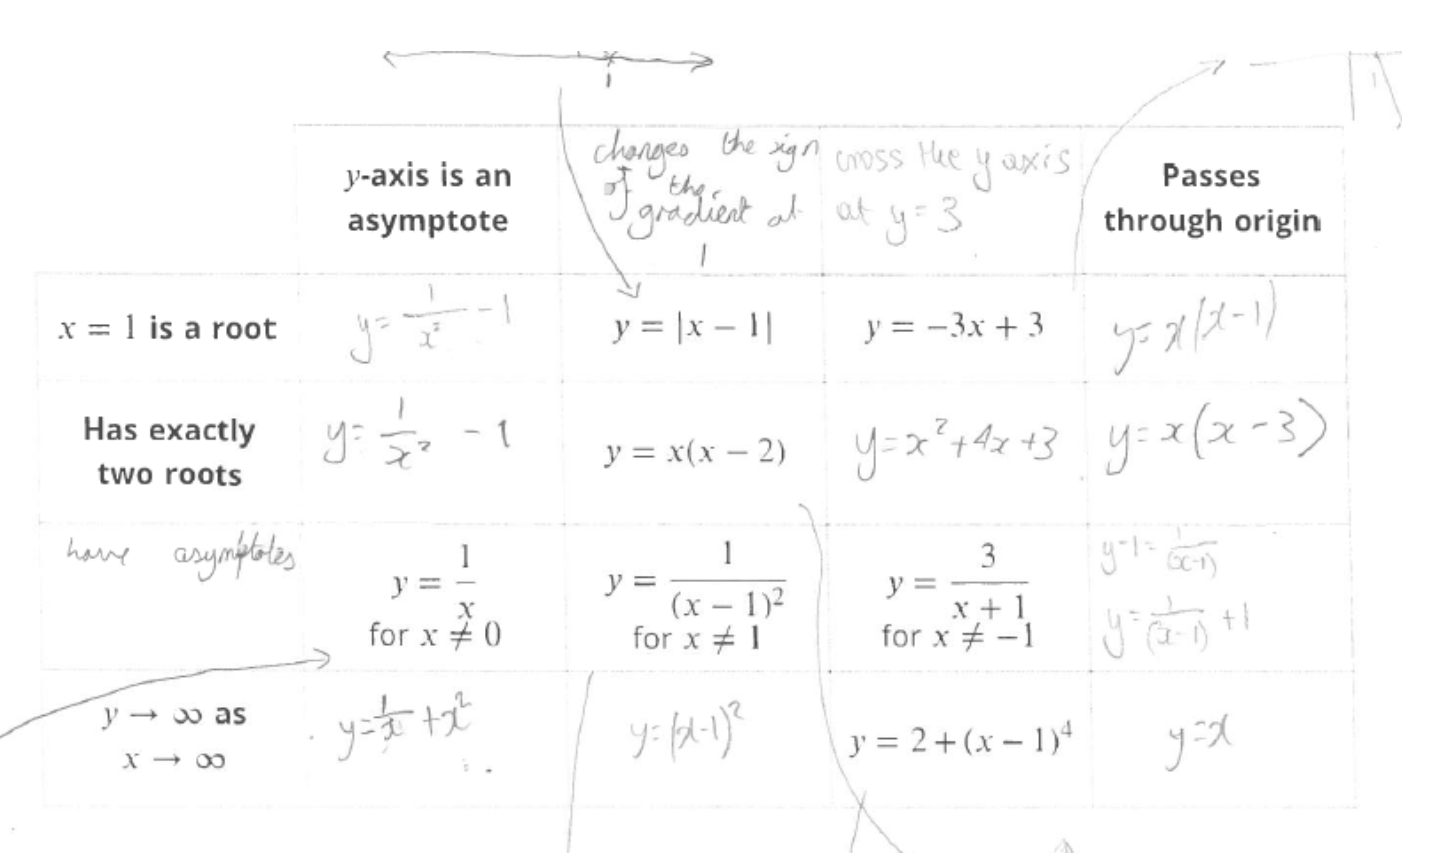 1
1
y-axis is an
asymptote
changes the sign
of the
gradient at
1
cross the y axis
at y = 3
Passes
through origin
x = 1 is a root
y = 1/x² - 1
y = |x − 1|
y = −3x + 3
y = x(x-1)
Has exactly
two roots
y = 1/x² - 1
y = x(x − 2)
y = x² + 4x + 3
y = x(x - 3)
have asymptotes
y = 1/x
for x ≠ 0
y = 1/(x − 1)²
for x ≠ 1
y = 3/(x + 1)
for x ≠ −1
y-1 = 1/(x-1)
y = 1/(x-1) + 1
y → ∞ as
x → ∞
y = 1/x + x²
y = (x-1)²
y = 2 + (x − 1)⁴
y = x